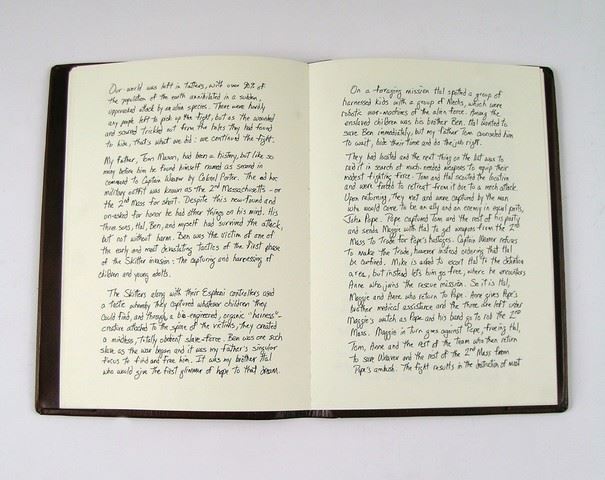 Our world was left in tatters, with over 90% of
the population of the earth annihilated in a sudden,
unprovoked attack by an alien species. There were hardly
any people left to pick up the fight, but as the wounded
and scarred trickled out from the holes they had found
to hide, that's what we did: we continued the fight.
My father, Tom Mason, had been a history, but like so
many before him he found himself named as second in
command to Captain Weaver by Colonel Porter. The ad hoc
military outfit was known as the 2nd Massachusetts - or
the 2nd Mass for short. Despite this new-found and
un-asked for honor he had other things on his mind. His
three sons, Hal, Ben, and myself had survived the attack,
but not without harm. Ben was the victim of one of
the early and most devastating tactics of the first phase
of the Skitter invasion: the capturing and harnessing of
children and young adults.
The Skitters along with their Espheni controllers used
a tactic whereby they captured whatever children they
could find, and through a bio-engineered, organic "harness"-
creature attached to the spine of the victims, they created
a mindless, totally obedient slave-force. Ben was one such
slave as the war began and it was my father's singular
focus to find and free him. It was my brother Hal
who would give the first glimmer of hope to that dream.
On a foraging mission Hal spotted a group of
harnessed kids with a group of Mechs, which were
robotic war-machines of the alien force. Among the
enslaved children was his brother Ben. Hal wanted to
save Ben immediately, but my father Tom counseled him
to wait, bide their time and do the job right.
They had located and the next thing on the list was to
raid it in search of much-needed weapons to equip their
modest fighting force. Tom and Hal scouted the location
and were forced to retreat from it due to a mech attack.
Upon returning, they met and were captured by the man
who would come to be an ally and an enemy in equal parts,
John Pope. Pope captured Tom and the rest of his party
and sends Maggie with Hal to get weapons from the 2nd
Mass to trade for Pope's hostages. Captain Weaver refuses
to make the trade, however instead ordering that Hal
be confined. Mike is asked to escort Hal to the detention
area, but instead lets him go free, where he encounters
Anne who joins the rescue mission. So it is Hal,
Maggie and Anne who return to Pope. Anne gives Pope's
brother medical assistance and the three are left under
Maggie's watch as Pope and his band go to rob the 2nd
Mass. Maggie in turn goes against Pope, freeing Hal,
Tom, Anne and the rest of the team who then return
to save Weaver and the rest of the 2nd Mass from
Pope's ambush. The fight results in the destruction of most